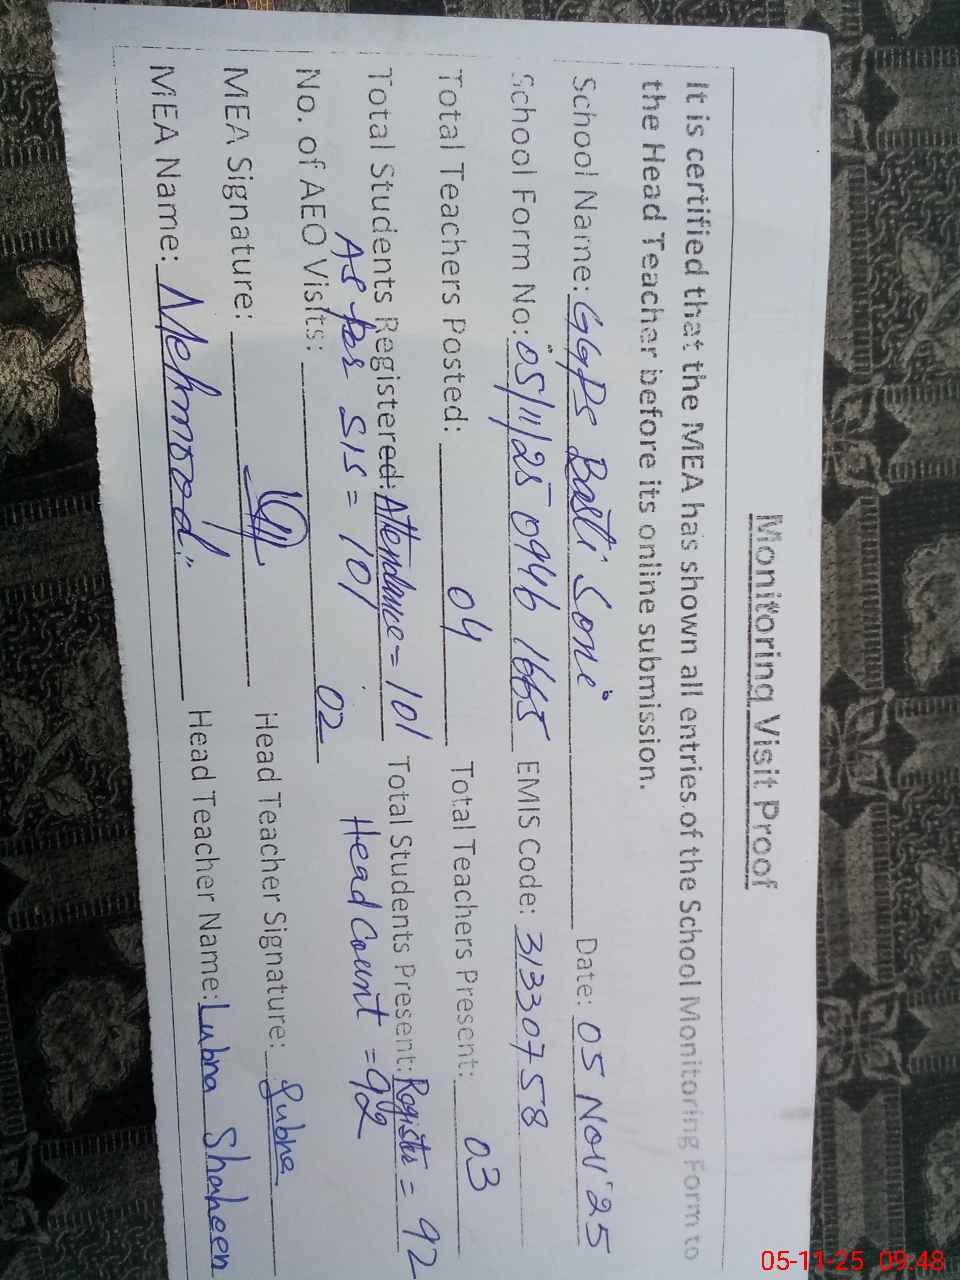 Monitoring Visit Proof
It is certified that the MEA has shown all entries of the School Monitoring Form to
the Head Teacher before its online submission.
School Name: GGPS Basti Soni Date: 05 Nov'25
School Form No: 05/11/25 0946 1665 EMIS Code: 31330758
Total Teachers Posted: 04 Total Teachers Present: 03
Total Students Registered: Attendance = 101 Total Students Present: Register = 92
As per SIS = 101 Head Count = 92
No. of AEO Visits: 02
MEA Signature: Head Teacher Signature: Lubna
MEA Name: Mehmood Head Teacher Name: Lubna Shaheen
05-11-25 09:48